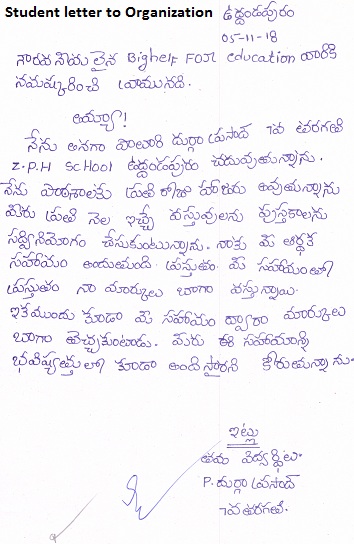 Student letter to Organization ఉద్దండపురం
05-11-18
గౌరవనీయులైన Bighelp For education వారికి
నమస్కరించి వ్రాయునది.
అయ్యా!
నేను అనగా పాలూరి దుర్గా ప్రసాద్ 7వ తరగతి
Z.P.H School ఉద్దండపురం చదువుతున్నాను.
నేను పాఠశాలకు ప్రతి రోజు హాజరు అవుతున్నాను
మీరు ప్రతి నెల ఇచ్చే వస్తువులను పుస్తకాలను
సద్వినియోగం చేసుకుంటున్నాను. నాకు మీ ఆర్థిక
సహాయం అందుతుంది. ప్రస్తుతం మీ సహాయంతో
ప్రస్తుతం నా మార్కులు బాగా వస్తున్నాయి.
ఇకముందు కూడా మీ సహాయం ద్వారా మార్కులు
బాగా తెచ్చుకుంటాను. మీరు ఈ సహాయాన్ని
భవిష్యత్తులో కూడా అందిస్తారని కోరుతున్నాను.
ఇట్లు
తమ విద్యార్థి
P. దుర్గా ప్రసాద్
7వ తరగతి.